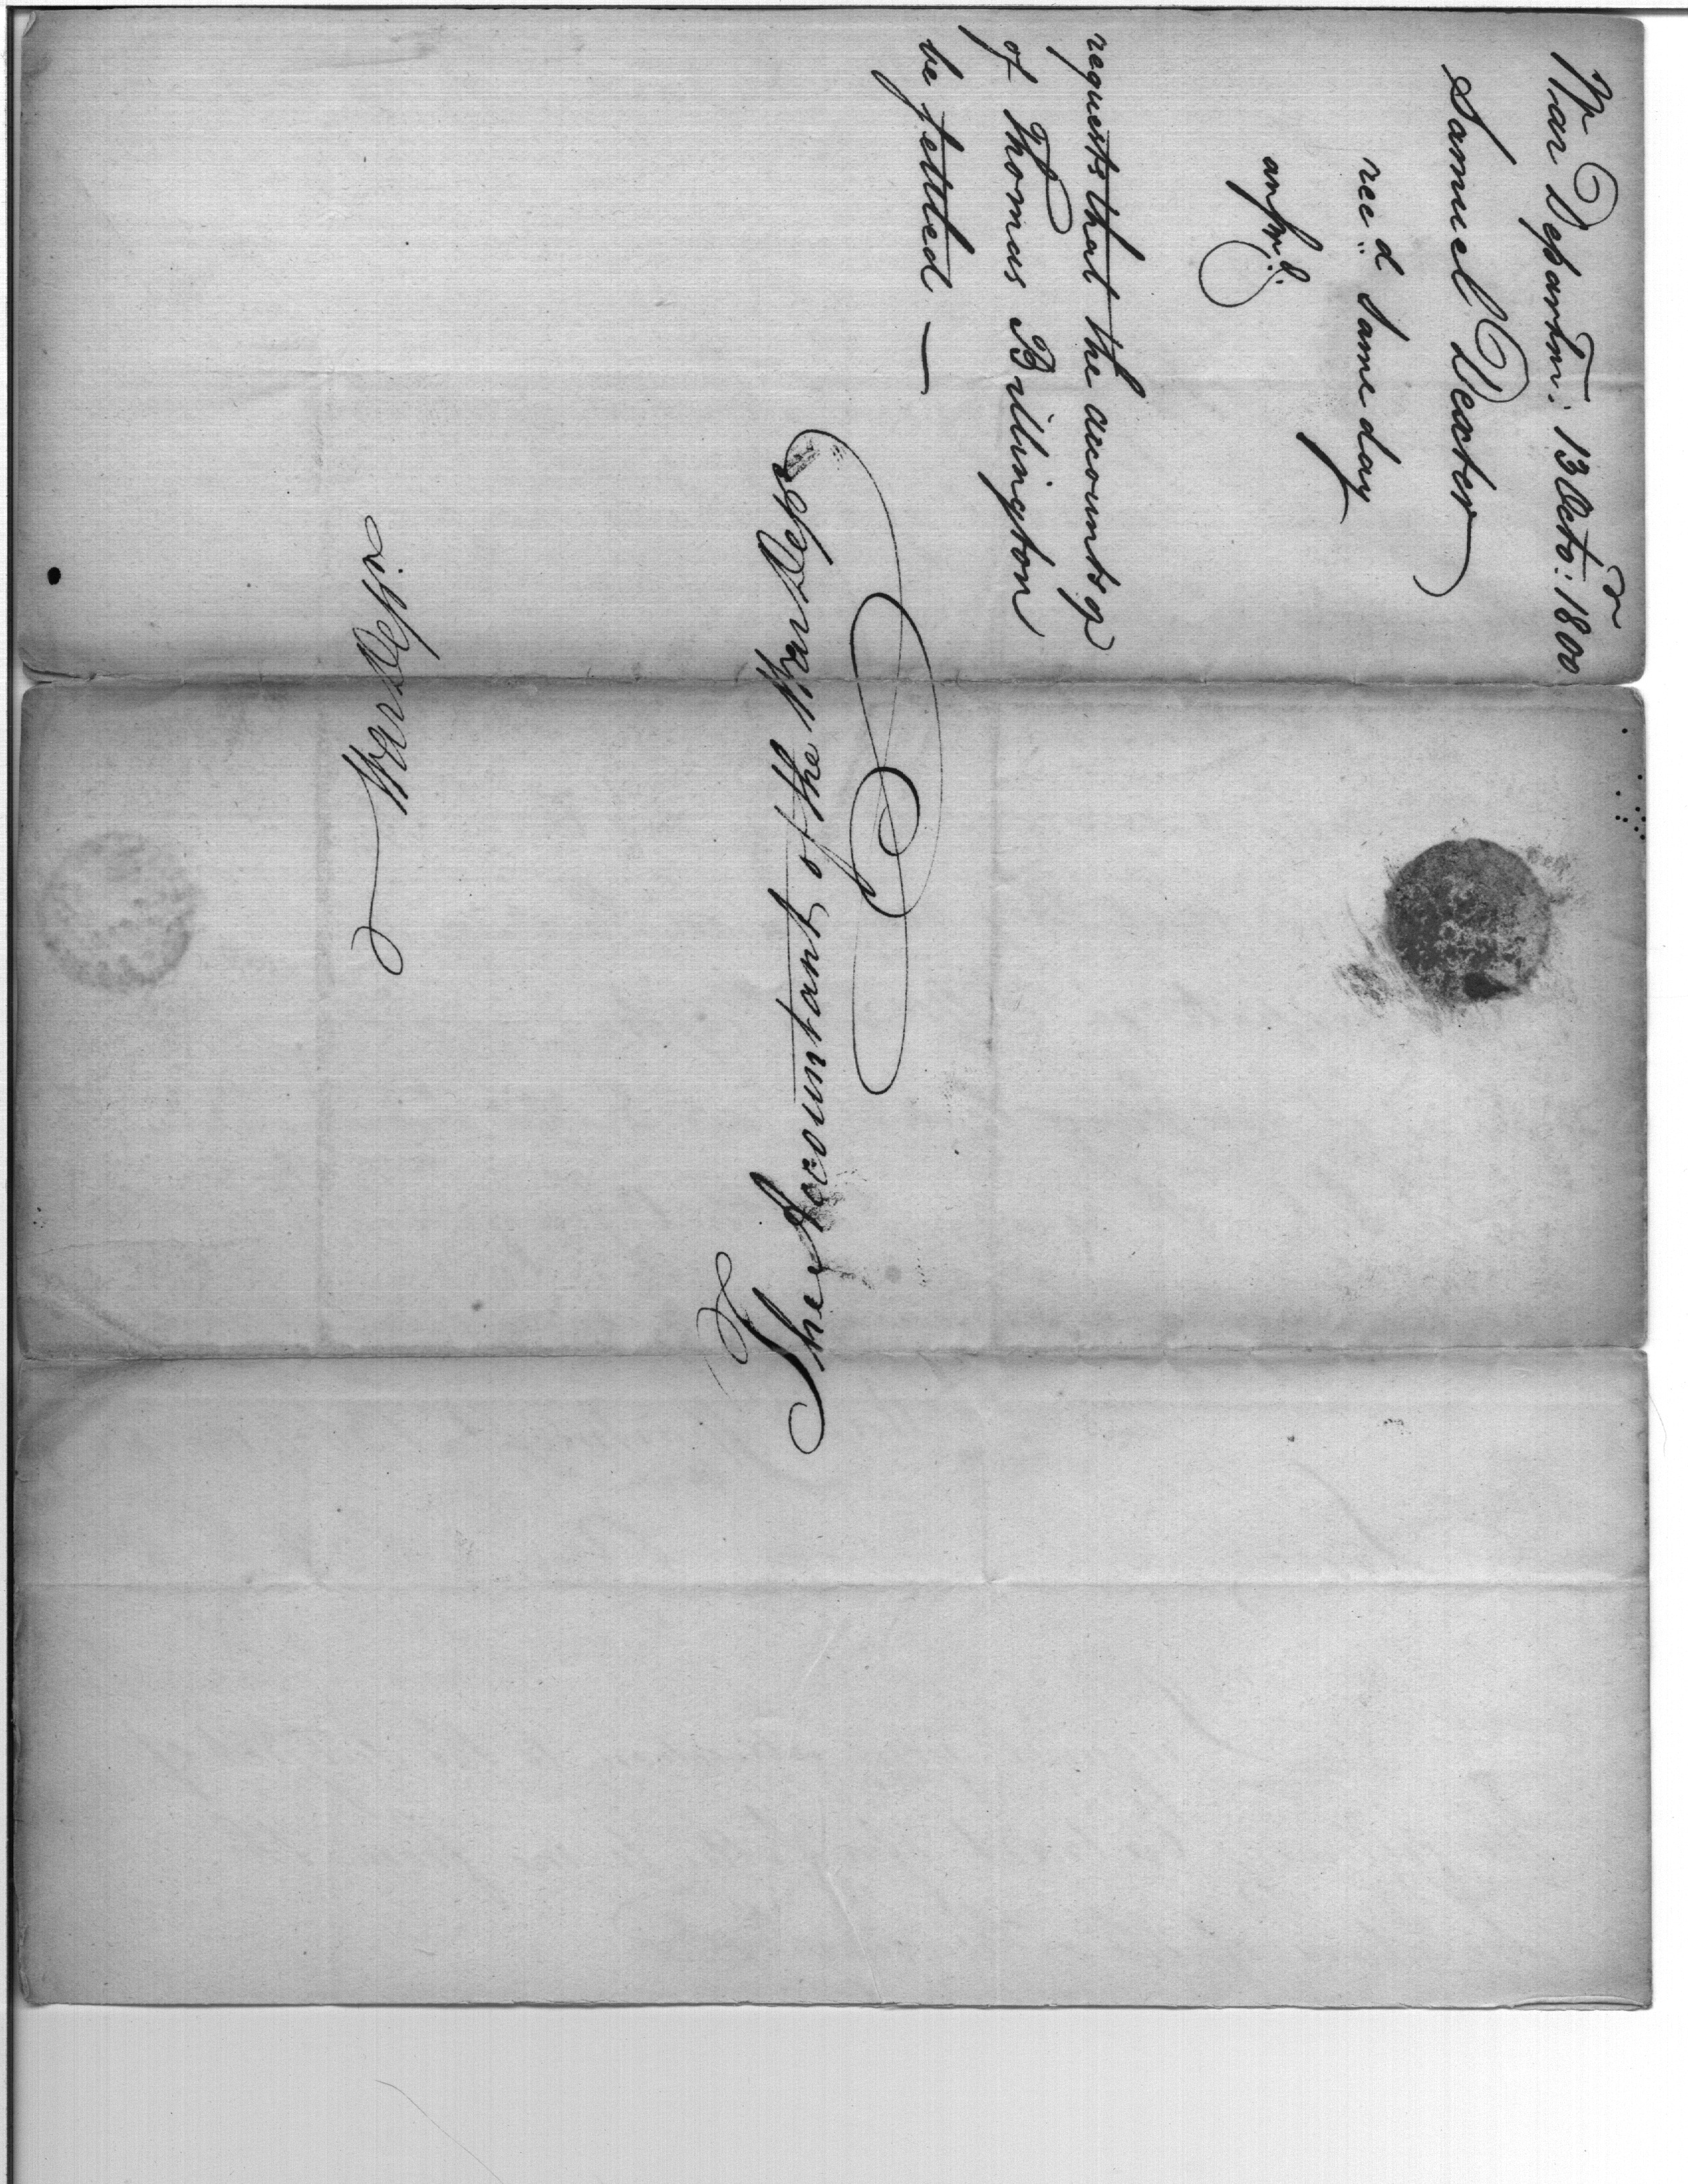 War Departmt: 13 Octo:r 1800
Samuel Dexter
rec:d same day
ansr:d
requests that the accounts of
of Thomas Billington
be settled —
The Accountant of the War Dept
War Dept.